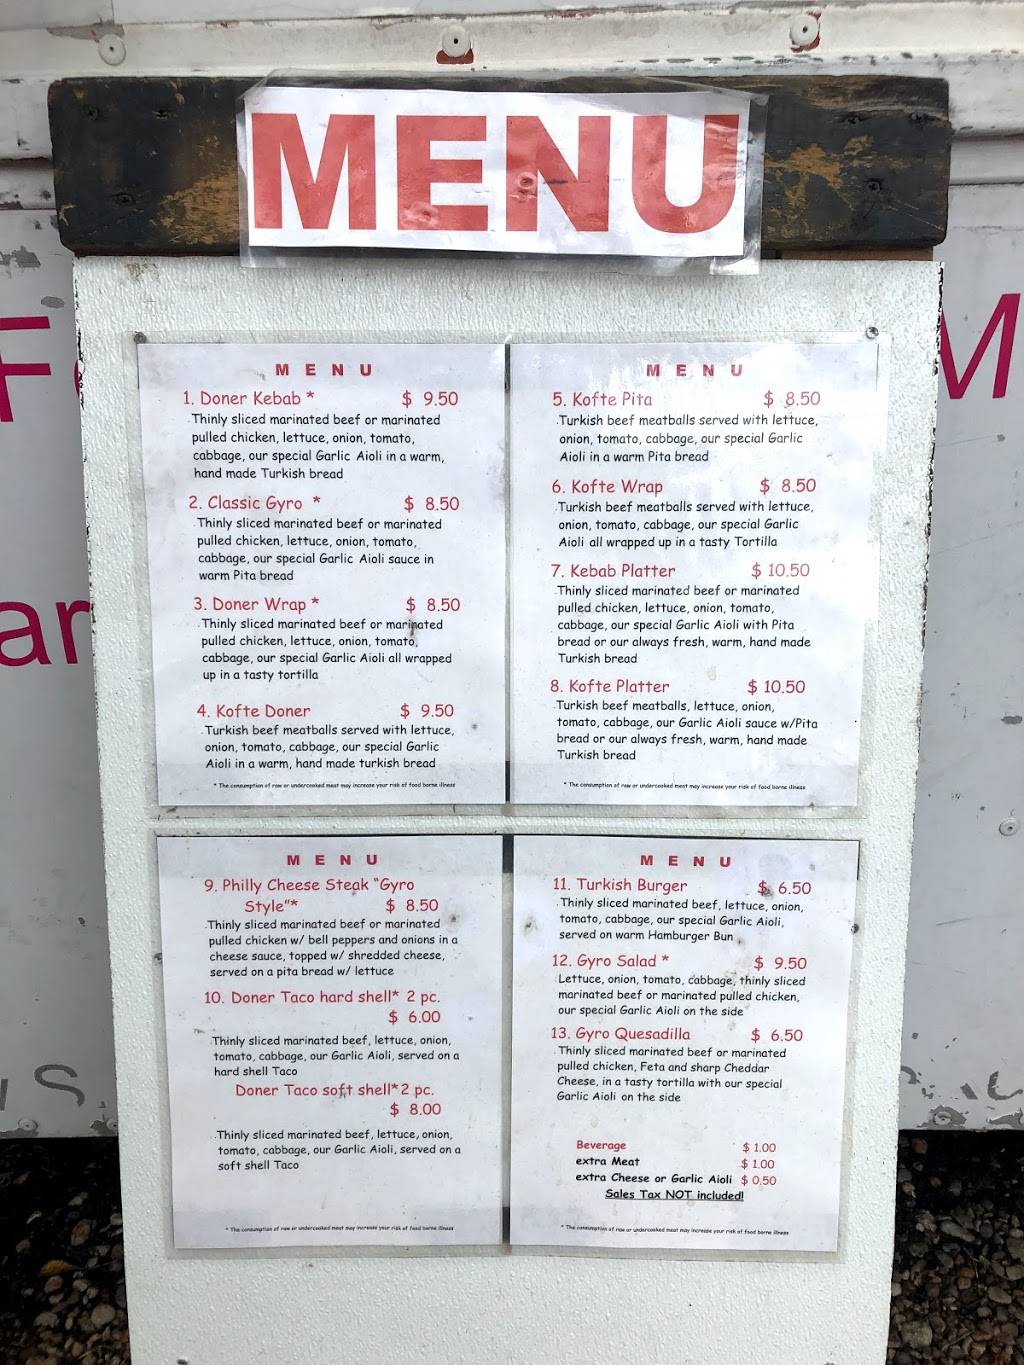 MENU
MENU
1. Doner Kebab * $ 9.50
Thinly sliced marinated beef or marinated
pulled chicken, lettuce, onion, tomato,
cabbage, our special Garlic Aioli in a warm,
hand made Turkish bread
2. Classic Gyro * $ 8.50
Thinly sliced marinated beef or marinated
pulled chicken, lettuce, onion, tomato,
cabbage, our special Garlic Aioli sauce in
warm Pita bread
3. Doner Wrap * $ 8.50
Thinly sliced marinated beef or marinated
pulled chicken, lettuce, onion, tomato,
cabbage, our special Garlic Aioli all wrapped
up in a tasty tortilla
4. Kofte Doner $ 9.50
Turkish beef meatballs served with lettuce,
onion, tomato, cabbage, our special Garlic
Aioli in a warm, hand made turkish bread
* The consumption of raw or undercooked meat may increase your risk of food borne illness
MENU
5. Kofte Pita $ 8.50
Turkish beef meatballs served with lettuce,
onion, tomato, cabbage, our special Garlic
Aioli in a warm Pita bread
6. Kofte Wrap $ 8.50
Turkish beef meatballs served with lettuce,
onion, tomato, cabbage, our special Garlic
Aioli all wrapped up in a tasty Tortilla
7. Kebab Platter $ 10.50
Thinly sliced marinated beef or marinated
pulled chicken, lettuce, onion, tomato,
cabbage, our special Garlic Aioli with Pita
bread or our always fresh, warm, hand made
Turkish bread
8. Kofte Platter $ 10.50
Turkish beef meatballs, lettuce, onion,
tomato, cabbage, our Garlic Aioli sauce w/Pita
bread or our always fresh, warm, hand made
Turkish bread
* The consumption of raw or undercooked meat may increase your risk of food borne illness
MENU
9. Philly Cheese Steak "Gyro
Style"* $ 8.50
Thinly sliced marinated beef or marinated
pulled chicken w/ bell peppers and onions in a
cheese sauce, topped w/ shredded cheese,
served on a pita bread w/ lettuce
10. Doner Taco hard shell* 2 pc.
$ 6.00
Thinly sliced marinated beef, lettuce, onion,
tomato, cabbage, our Garlic Aioli, served on a
hard shell Taco
Doner Taco soft shell* 2 pc.
$ 8.00
Thinly sliced marinated beef, lettuce, onion,
tomato, cabbage, our Garlic Aioli, served on a
soft shell Taco
* The consumption of raw or undercooked meat may increase your risk of food borne illness
MENU
11. Turkish Burger $ 6.50
Thinly sliced marinated beef, lettuce, onion,
tomato, cabbage, our special Garlic Aioli,
served on warm Hamburger Bun
12. Gyro Salad * $ 9.50
Lettuce, onion, tomato, cabbage, thinly sliced
marinated beef or marinated pulled chicken,
our special Garlic Aioli on the side
13. Gyro Quesadilla $ 6.50
Thinly sliced marinated beef or marinated
pulled chicken, Feta and sharp Cheddar
Cheese, in a tasty tortilla with our special
Garlic Aioli on the side
Beverage $ 1.00
extra Meat $ 1.00
extra Cheese or Garlic Aioli $ 0,50
Sales Tax NOT included!
* The consumption of raw or undercooked meat may increase your risk of food borne illness